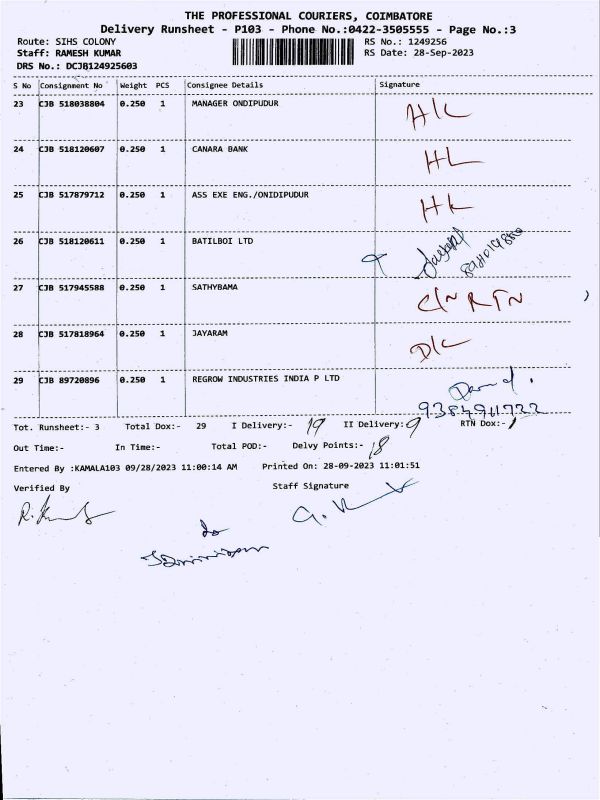 THE PROFESSIONAL COURIERS, COIMBATORE
Delivery Runsheet - P103 - Phone No.:0422-3505555 - Page No.:3
Route: SIHS COLONY RS No.: 1249256
Staff: RAMESH KUMAR RS Date: 28-Sep-2023
DRS No.: DCJB124925603
S No Consignment No Weight PCS Consignee Details Signature
23 CJB 518038804 0.250 1 MANAGER ONDIPUDUR H/L
24 CJB 518120607 0.250 1 CANARA BANK HL
25 CJB 517879712 0.250 1 ASS EXE ENG./ONIDIPUDUR HL
26 CJB 518120611 0.250 1 BATILBOI LTD
27 CJB 517945588 0.250 1 SATHYBAMA C/N RTN
28 CJB 517818964 0.250 1 JAYARAM D/L
29 CJB 89720896 0.250 1 REGROW INDUSTRIES INDIA P LTD
9384911722
Tot. Runsheet:- 3 Total Dox:- 29 I Delivery:- 19 II Delivery:- 9 RTN Dox:- 1
Out Time:- In Time:- Total POD:- Delvy Points:- 18
Entered By :KAMALA103 09/28/2023 11:00:14 AM Printed On: 28-09-2023 11:01:51
Verified By Staff Signature